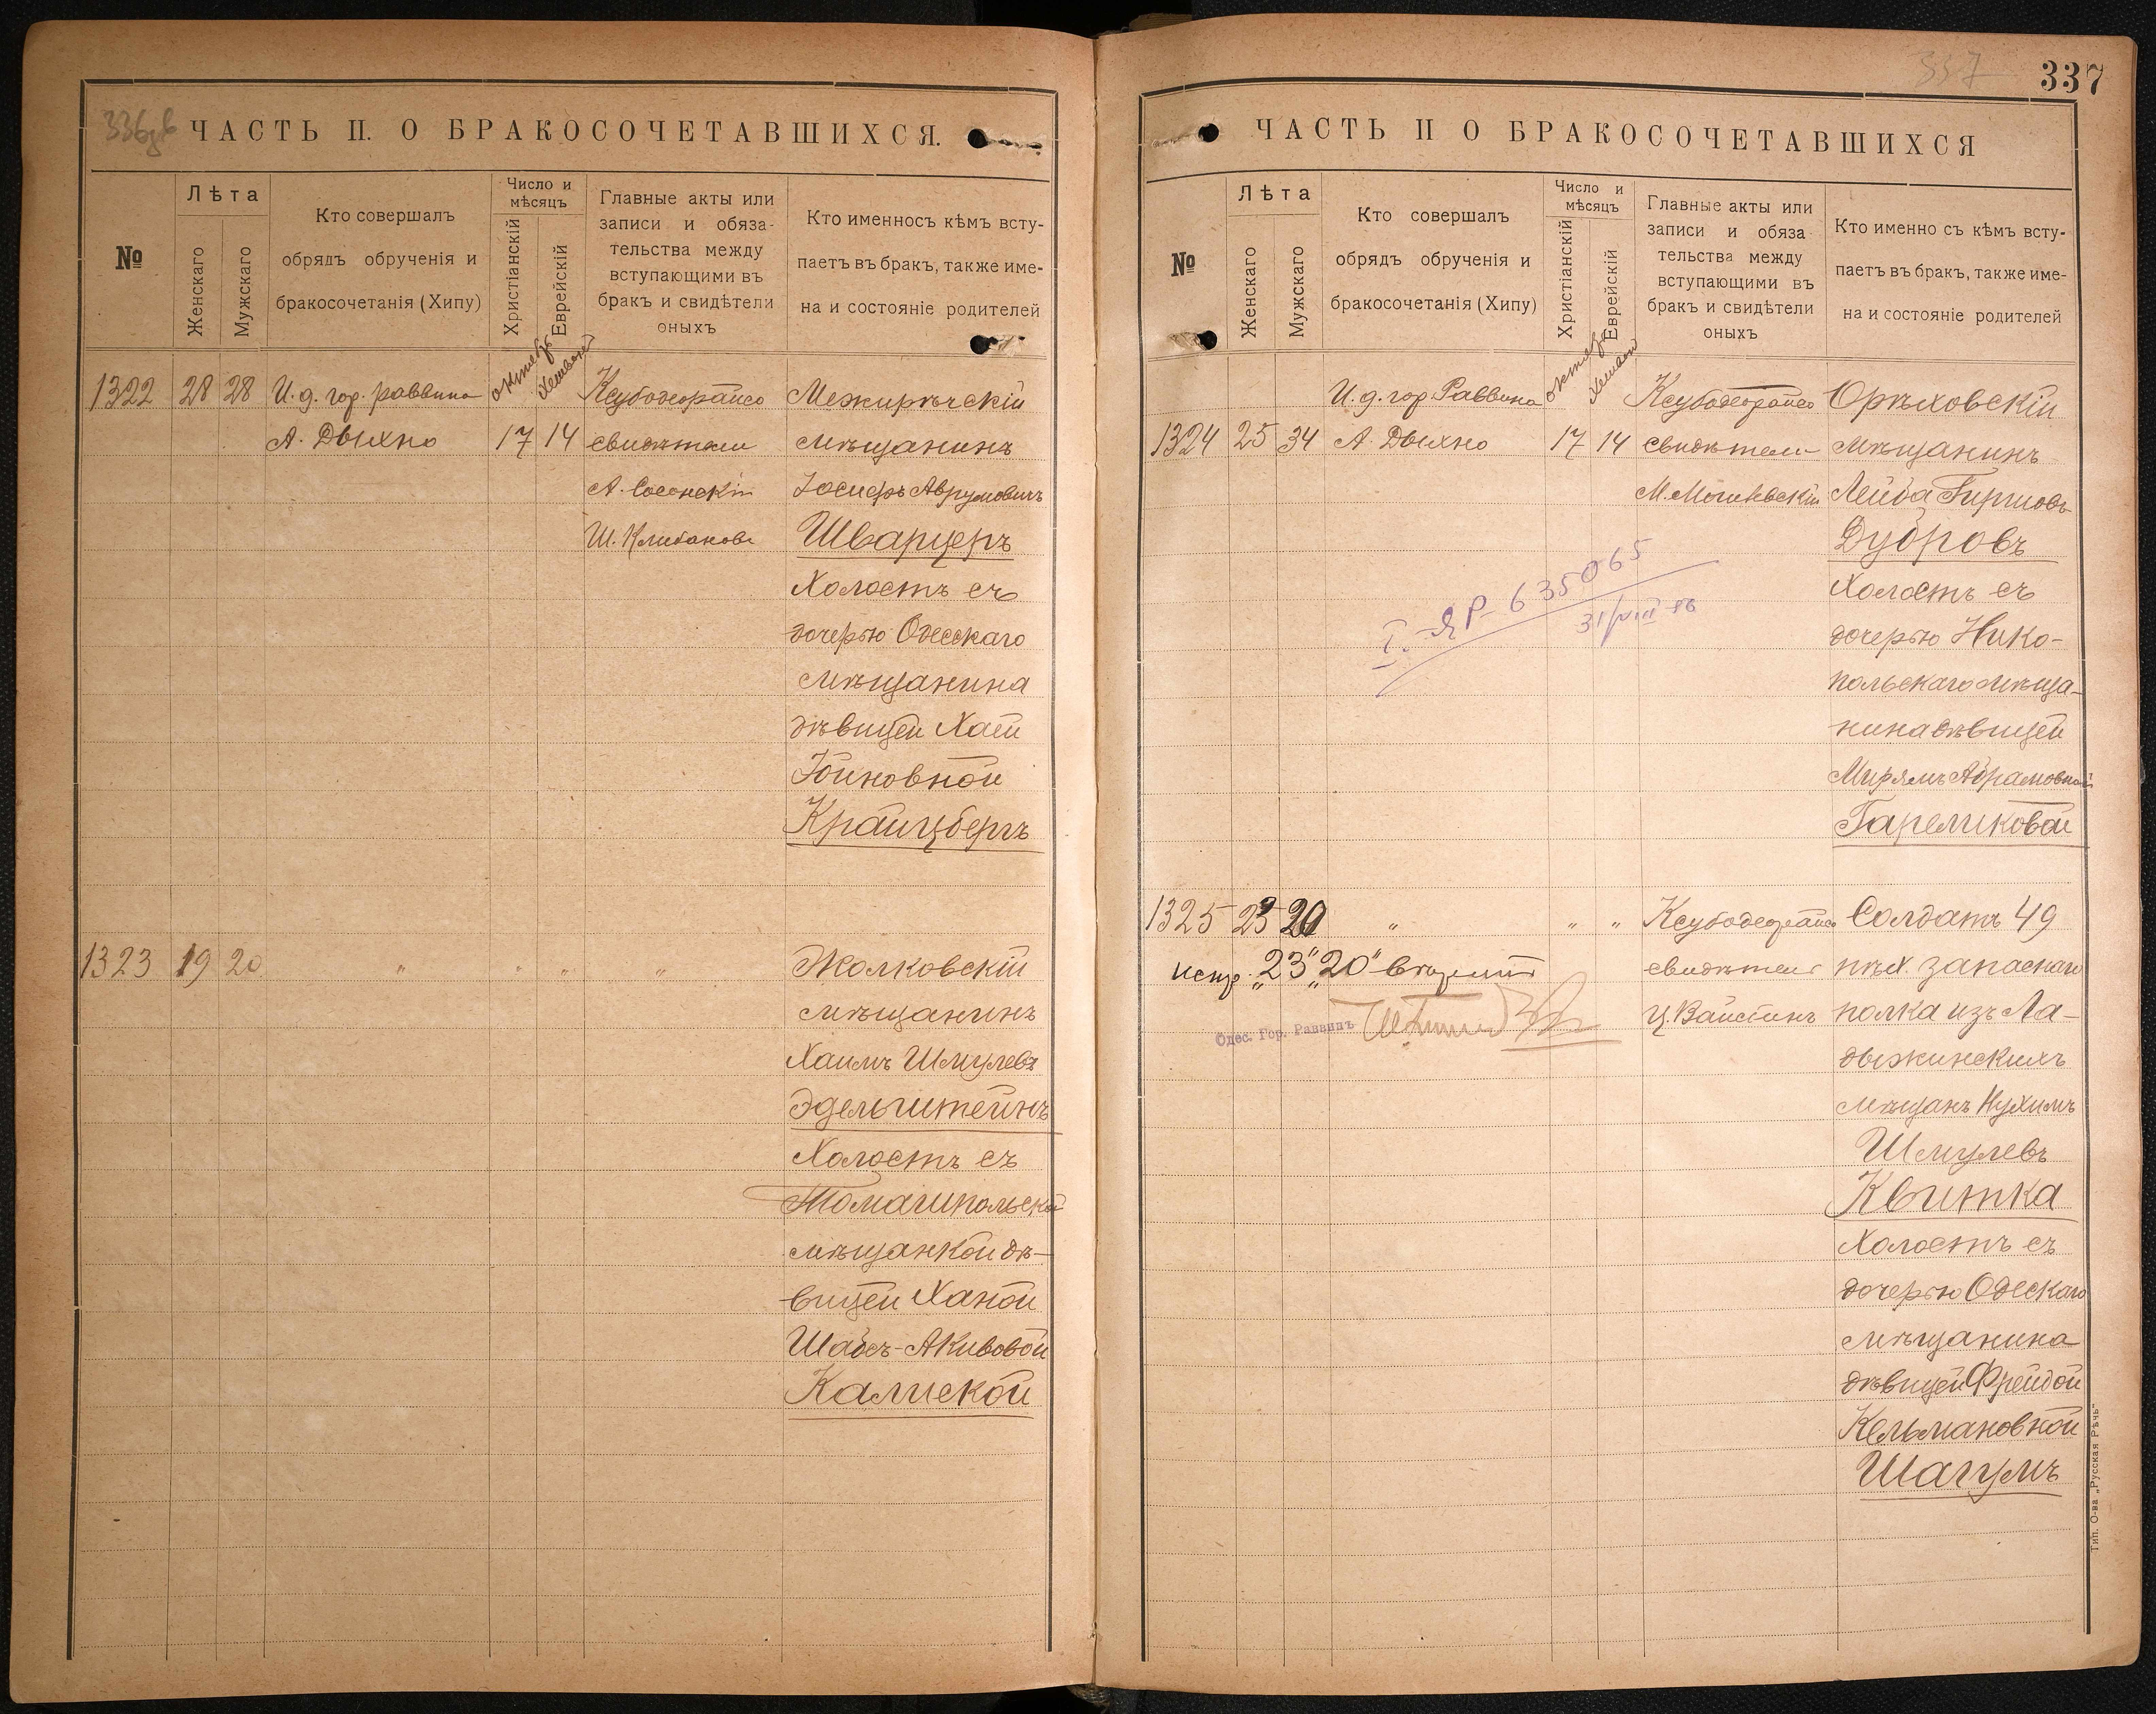 336 зв
ЧАСТЬ II. О БРАКОСОЧЕТАВШИХСЯ.
№
Лѣта
Женскаго
Мужскаго
Кто совершалъ
обрядъ обрученія и
бракосочетанія (Хипу)
Число и
мѣсяцъ
Христіанскій
Еврейскій
Главные акты или
записи и обяза-
тельства между
вступающими въ
бракъ и свидѣтели
оныхъ
Кто именносъ кѣмъ всту-
паетъ въ бракъ, также име-
на и состояніе родителей
1322 28 28 И. д. гор. раввина
октябр Хешвонъ
А. Дыхно 17 14
свидѣтели
А. Сосонскій
Ш. Клибановъ
Межирѣчскій
мѣщанинъ
Іосифъ Аврумовичъ
Шварцеръ
Холостъ съ
дочерью Одесскаго
мѣщанина
дѣвицей Хаей
Іойновной
Крайцбергъ
1323 19 20 " " " "
Жолковскій
мѣщанинъ
Хаимъ Шмулевъ
Эдельштейнъ
Холостъ съ
Томашпольской
мѣщанкой дѣ-
вицей Ханой
Шабсъ-Акивовой
Калиской
337
337
ЧАСТЬ II О БРАКОСОЧЕТАВШИХСЯ
№
Лѣта
Женскаго
Мужскаго
Кто совершалъ
обрядъ обрученія и
бракосочетанія (Хипу)
Число и
мѣсяцъ
Христіанскій
Еврейскій
Главные акты или
записи и обяза
тельства между
вступающими въ
бракъ и свидѣтели
оныхъ
Кто именно съ кѣмъ всту-
паетъ въ бракъ, также име-
на и состояніе родителей
И. д. гор. Раввина
октябр Хешвон
1324 25 34 А. Дыхно 17 14
свидѣтели
М. Могилевскій
Орѣховскій
мѣщанинъ
Лейба Гиршовъ
Дубровъ
Холостъ съ
дочерью Нико-
польскаго мѣща-
нина дѣвицей
Мирямъ Абрамовной
Гареликовой
I-ЯР 635065
31/VIII
1325 23 20 " " "
испр. "23" "20" вторити
Одес. Гор. Раввинъ
свидѣтель
Ц. Вайстинъ
Солдатъ 49
пѣх. запаснаго
полка изъ Ла-
дыжинскихъ
мѣщанъ Нухимъ
Шмулевъ
Квитка
Холостъ съ
дочерью Одескаго
мѣщанина
дѣвицей Фрейдой
Кельмановной
Шагумъ
Тип. О-ва „Русская Рѣчь"